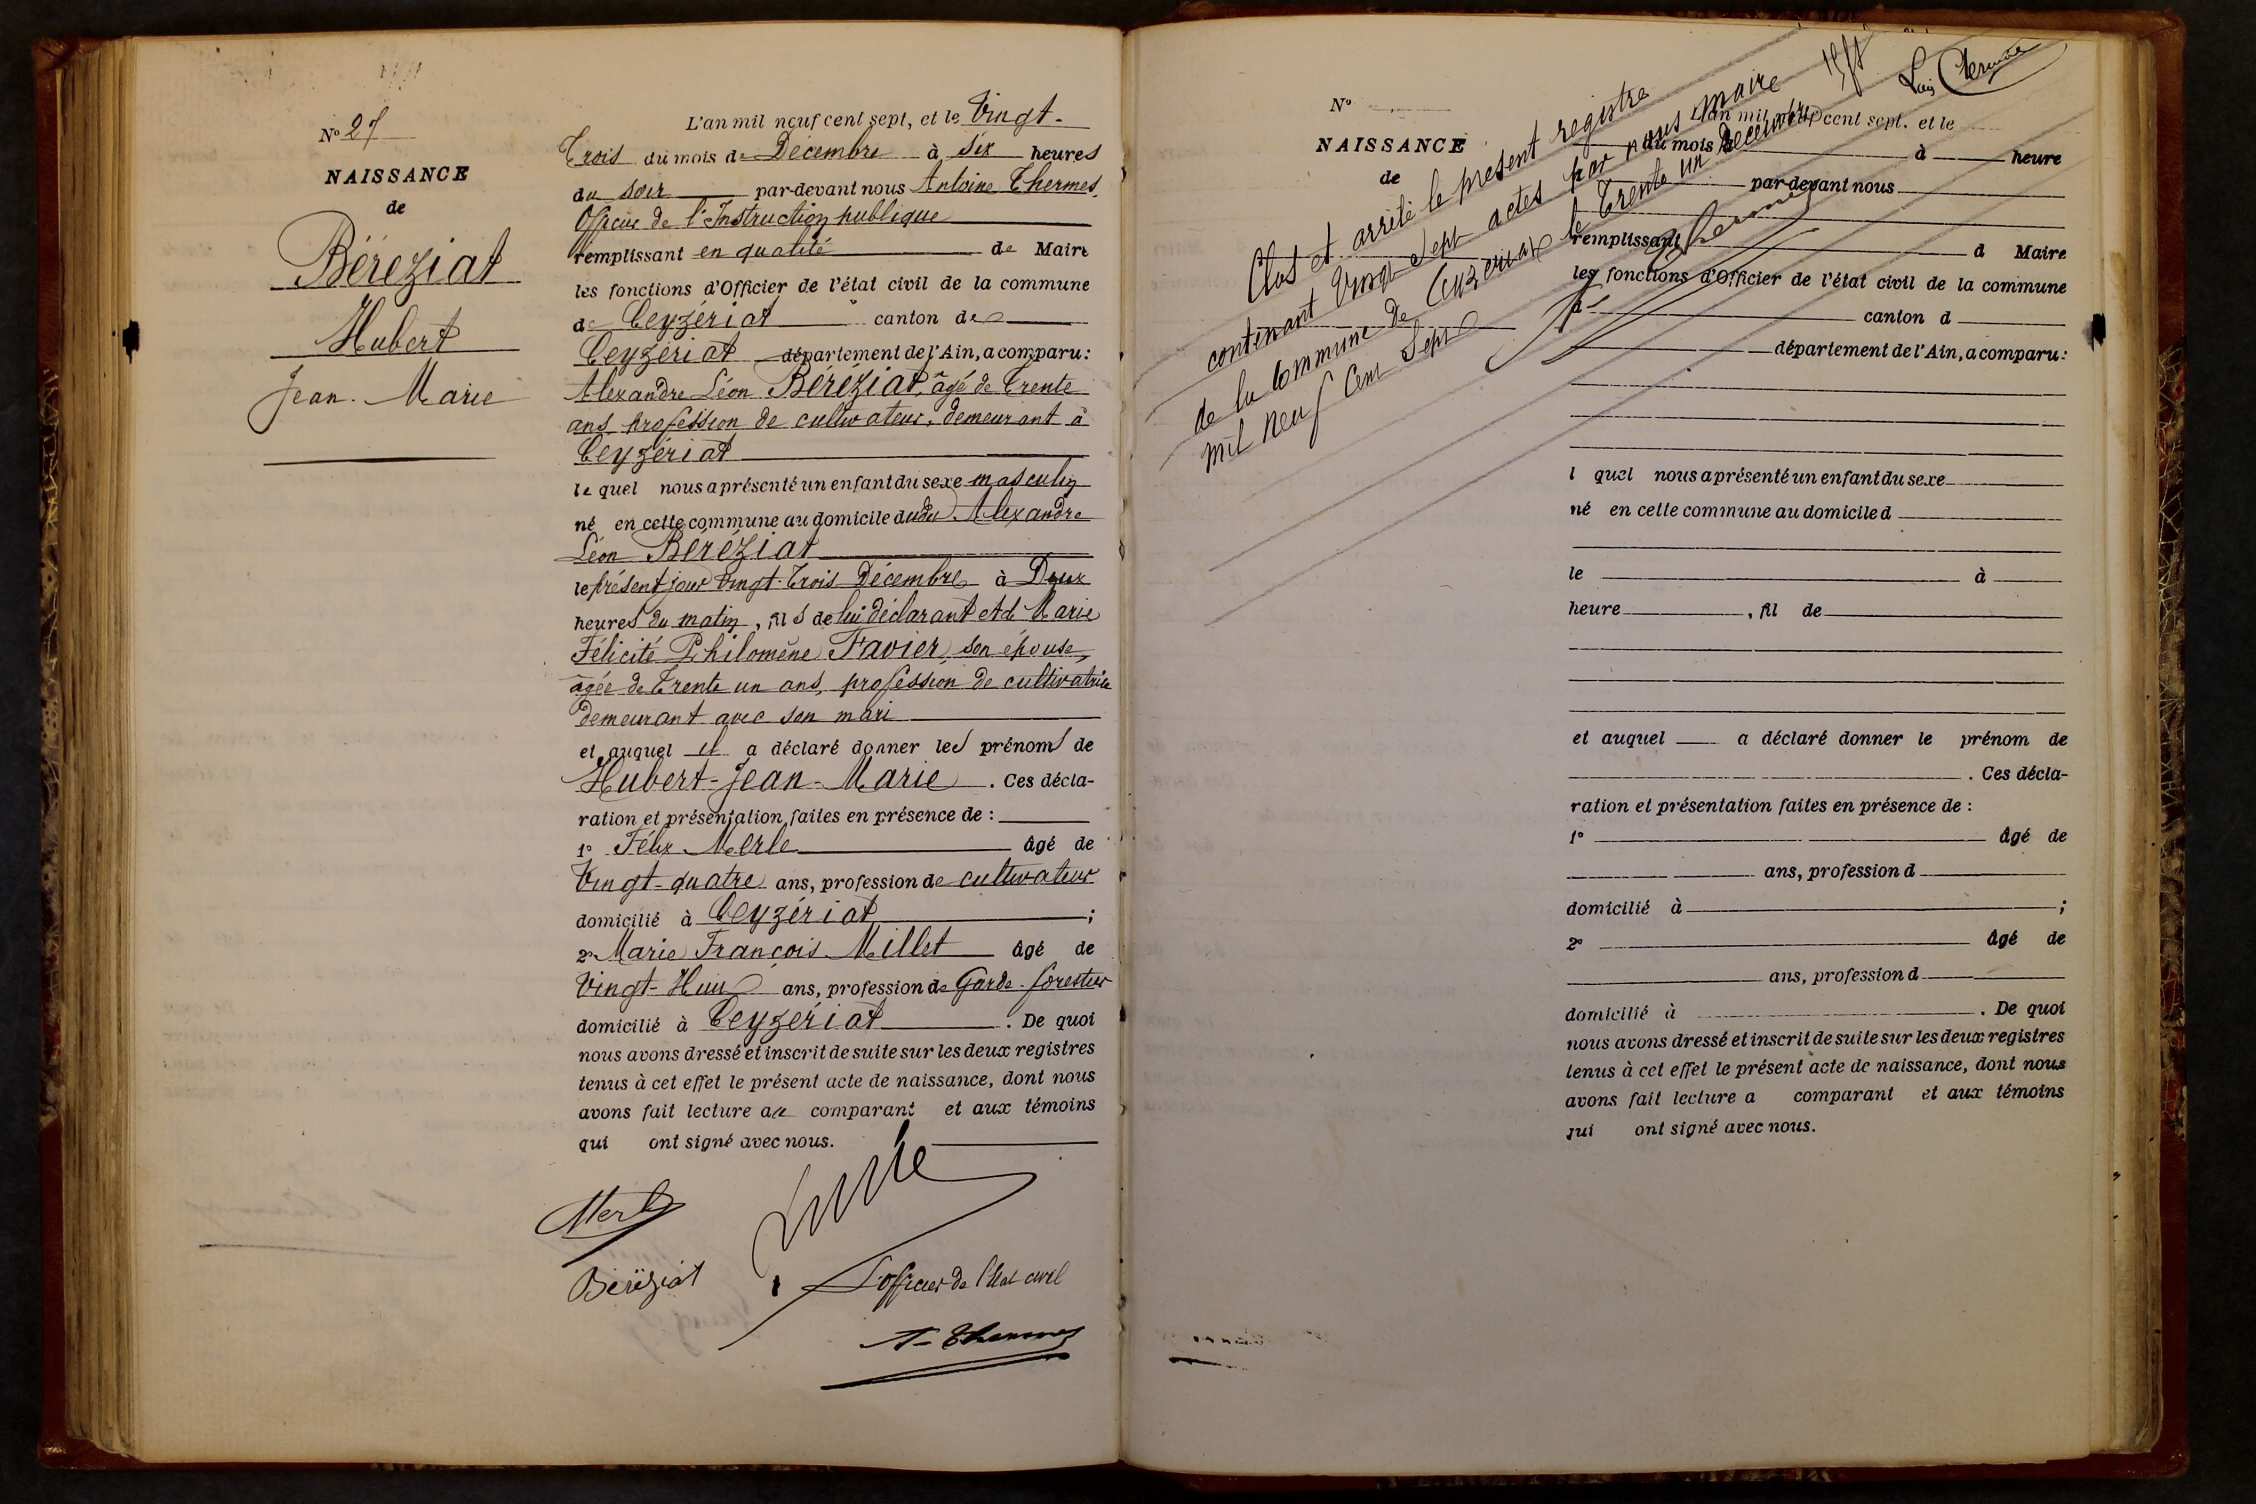 N° 27
NAISSANCE
de
Béreziat
Hubert
Jean-Marie
L'an mil neuf cent sept, et le Vingt-
Trois du mois de Décembre à six heures
du soir par-devant nous Antoine Thermes,
Officier de l'Instruction publique
remplissant en qualité de Maire
les fonctions d'Officier de l'état civil de la commune
de Ceyzériat canton de
Ceyzériat département de l'Ain, a comparu:
Alexandre Léon Béréziat, âgé de Trente
ans profession de cultivateur, demeurant à
Ceyzériat
le quel nous a présenté un enfant du sexe masculin
né en cette commune au domicile dudit Alexandre
Léon Béréziat
le présent jour Vingt-Trois Décembre à Deux
heures du matin, fils de lui déclarant et d Marie
Félicité Philomène Favier, son épouse,
âgée de Trente un ans, profession de cultivatrice
demeurant avec son mari
et auquel il a déclaré donner les prénoms de
Hubert-Jean-Marie. Ces décla-
ration et présentation faites en présence de :
1° Félix Merle âgé de
Vingt-quatre ans, profession de cultivateur
domicilié à Ceyzériat ;
2° Marie François Millet âgé de
Vingt-Huit ans, profession de Garde-forestier
domicilié à Ceyzériat. De quoi
nous avons dressé et inscrit de suite sur les deux registres
tenus à cet effet le présent acte de naissance, dont nous
avons fait lecture au comparant et aux témoins
qui ont signé avec nous.
Merle
Béréziat
L'officier de l'état civil
A. Thermes
N°
NAISSANCE
de
Clos et arrêté le présent registre
contenant Vingt sept actes par nous maire
de la commune de Ceyzériat le Trente un Décembre
mil neuf cent sept
Thermes
L'an mil neuf cent sept, et le
du mois d à heure
par-devant nous
remplissant d Maire
les fonctions d'Officier de l'état civil de la commune
d canton d
département de l'Ain, a comparu:
l quel nous a présenté un enfant du sexe
né en cette commune au domicile d
le à
heure , fil de
et auquel a déclaré donner le prénom de
. Ces décla-
ration et présentation faites en présence de :
1° âgé de
ans, profession d
domicilié à ;
2° âgé de
ans, profession d
domicilié à . De quoi
nous avons dressé et inscrit de suite sur les deux registres
tenus à cet effet le présent acte de naissance, dont nous
avons fait lecture a comparant et aux témoins
qui ont signé avec nous.